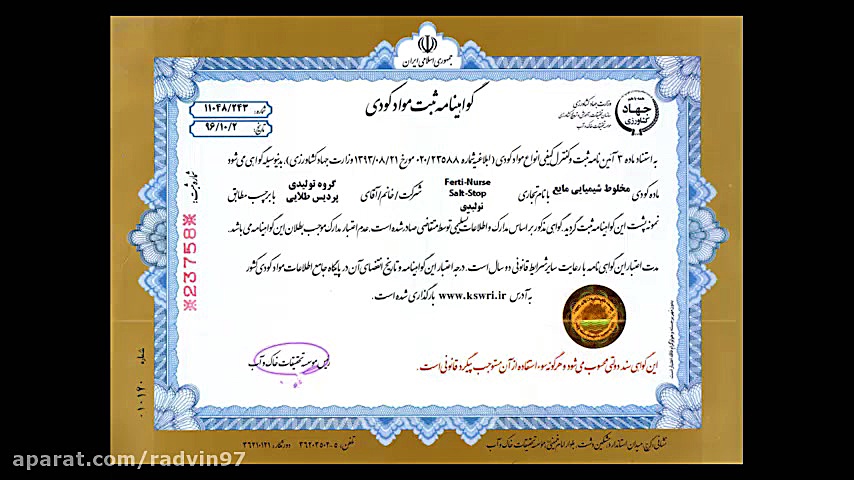 جمهوری اسلامی ایران
گواهینامه ثبت مواد کودی
شماره: ۱۱۰۴۸/۲۴۳
تاریخ: ۹۶/۱۰/۲
وزارت جهاد کشاورزی
سازمان تحقیقات، آموزش و ترویج کشاورزی
موسسه تحقیقات خاک و آب
همه با هم
جهاد
کشاورزی
به استناد ماده ۳ آئین نامه ثبت و کنترل کیفی انواع مواد کودی (ابلاغیه شماره ۰۲۰/۲۳۵۸۸ مورخ ۱۳۹۳/۰۸/۲۱ وزارت جهاد کشاورزی)، بدینوسیله گواهی می شود
ماده کودی مخلوط شیمیایی مایع با نام تجاری Ferti-Nurse Salt-Stop تولیدی شرکت/خانم/آقای گروه تولیدی پردیس طلایی با برچسب مطابق
نمونه پشت این گواهینامه ثبت گردید. گواهی مذکور بر اساس مدارک و اطلاعات تسلیمی توسط متقاضی صادر شده است. عدم اعتبار مدارک موجب بطلان این گواهینامه می باشد.
مدت اعتبار این گواهی نامه با رعایت سایر شرایط قانونی دو سال است. درجه اعتبار این گواهینامه و تاریخ انقضای آن در پایگاه جامع اطلاعات مواد کودی کشور
به آدرس www.kswri.ir بارگذاری شده است.
رئیس موسسه تحقیقات خاک و آب
این گواهی سند دولتی محسوب می شود و هرگونه سوء استفاده از آن مستوجب پیگرد قانونی است.
شماره ثبت:
※23758※
شماره ۰۱۰۱۲۰
نشانی: کرج، میدان استاندارد، مشکین دشت، بلوار امام خمینی، موسسه تحقیقات خاک و آب
تلفن: ۵-۳۶۲۰۳۵۰۲ دورنگار: ۳۶۲۱۰۱۲۱
aparat.com/radvin97